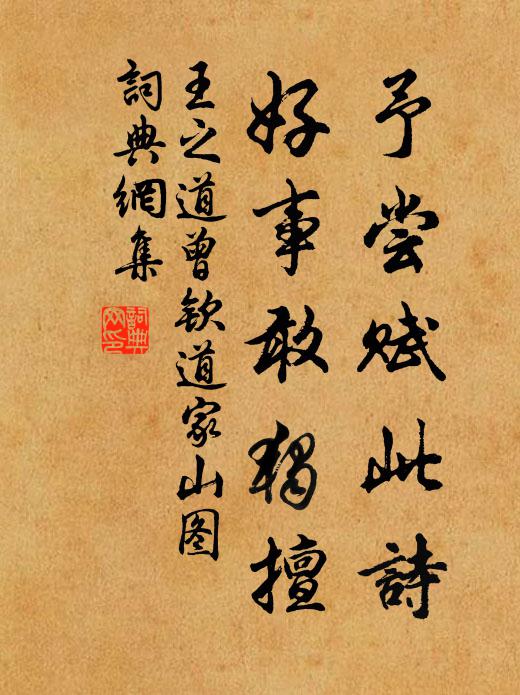 予尝赋此詩
好事敢獨擅
王之道曾欽道家山图
詞典網集
詞典網印